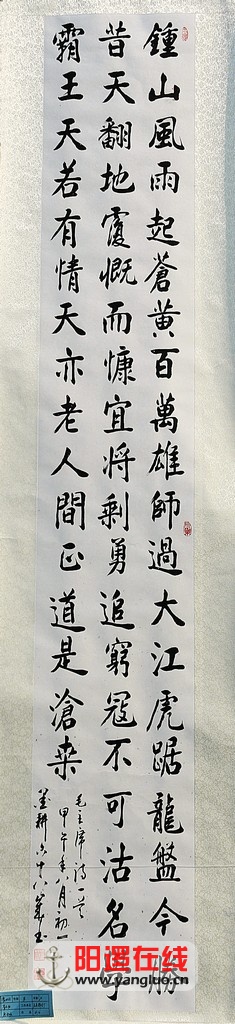 鍾山風雨起蒼黃百萬雄師過大江虎踞龍盤今勝
昔天翻地覆慨而慷宜將剩勇追窮寇不可沽名學
霸王天若有情天亦老人間正道是滄桑
毛主席詩一首
甲午年八月初一
墨耕六十八叟书
阳逻在线
www.yangluo.net